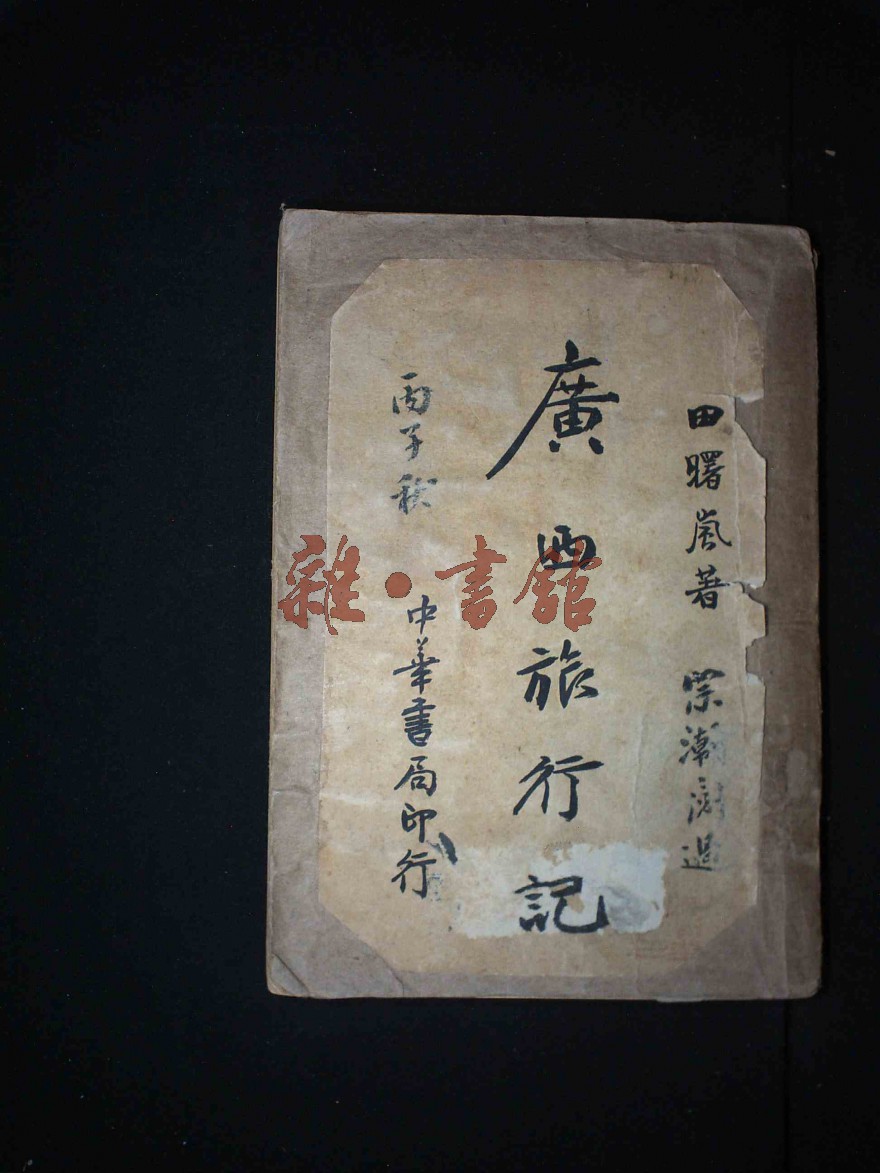 田曙嵐著 宗潮
廣西旅行記
丙子秋 中華書局印行
雜·書館